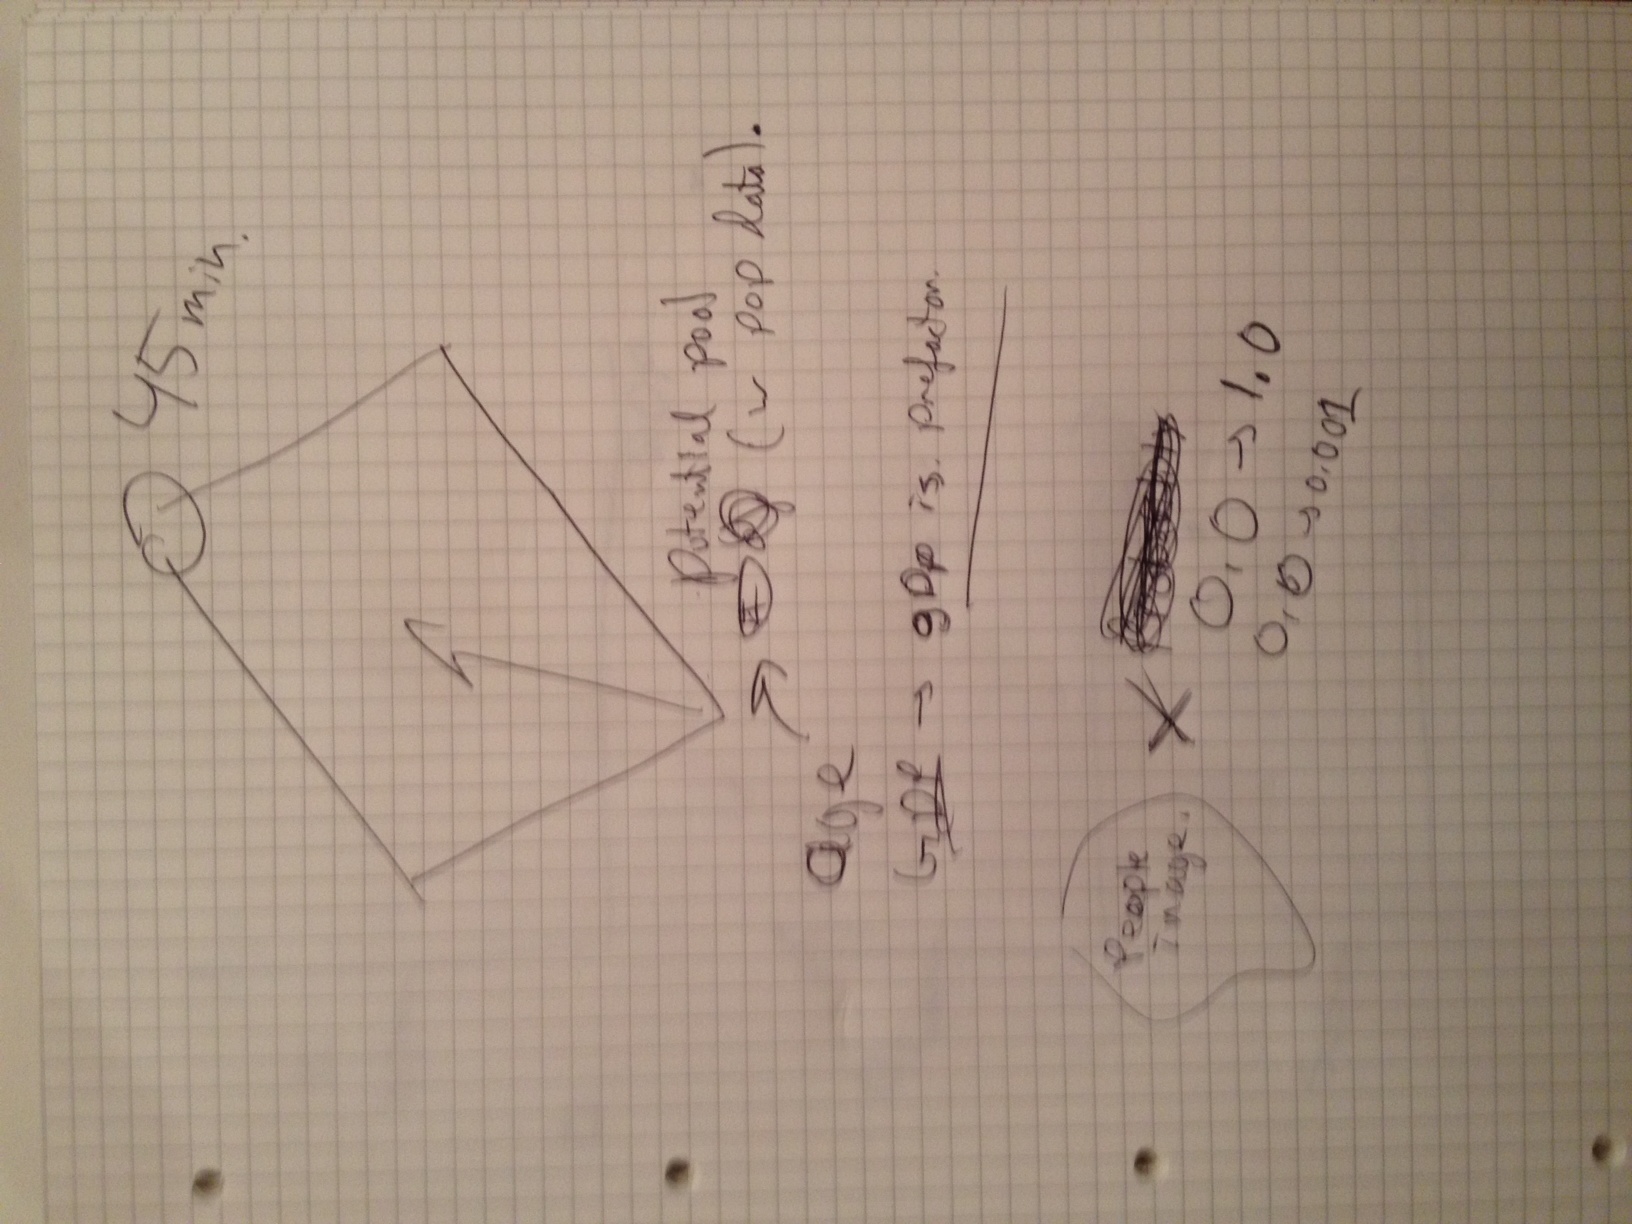 45 min.
Potential pool
(w pop data).
age →
→ gdp is prefactor.
People
in age.
X
0,0 → 1,0
0,0 → 0,001